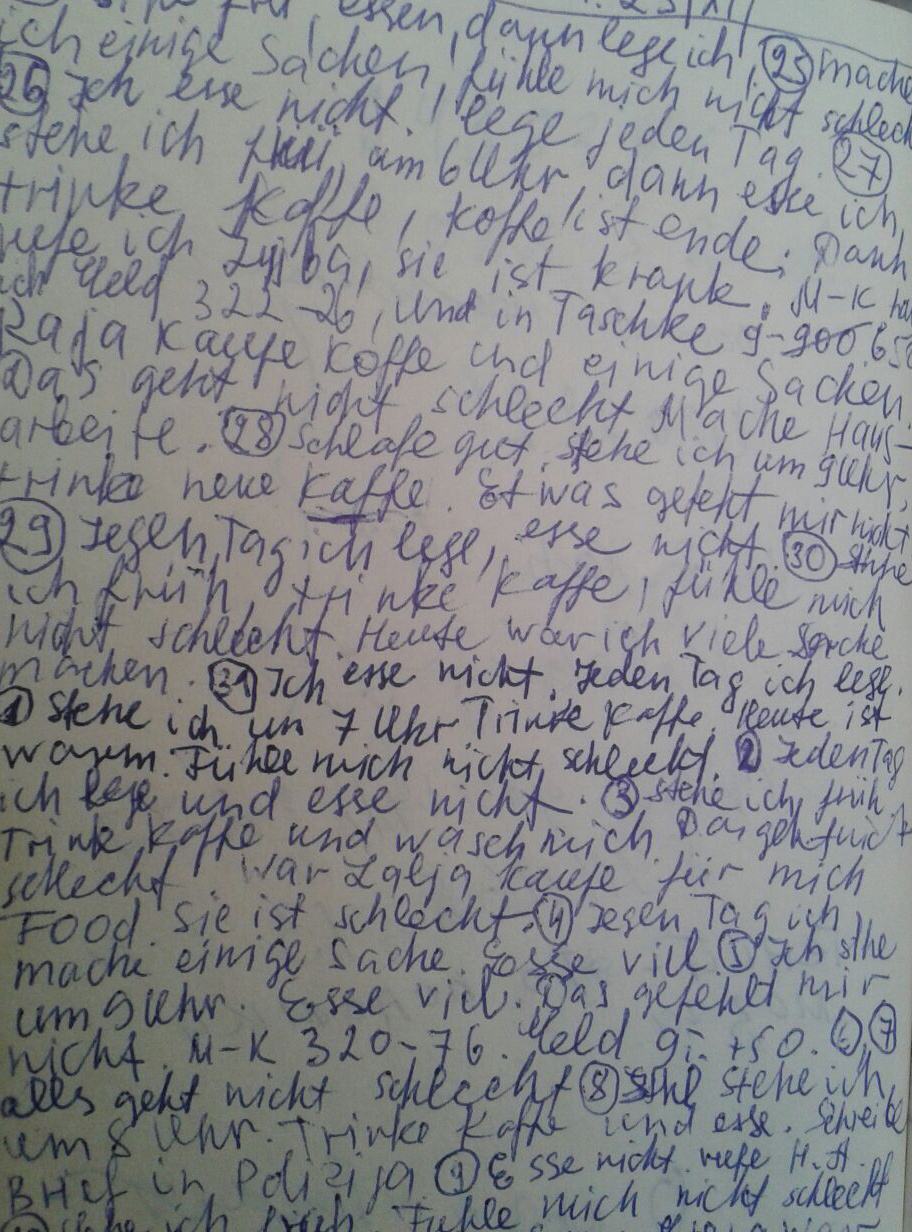 essen, dann lege ich, 25 mache
ich einige Sachen, fühle mich nicht schlech
26 Ich esse nicht, lege jeden Tag. 27
stehe ich früi, am 6 Uhr, dann esse ich,
trinke Kaffe, Koffe ist ende. Dann
rufe ich sie ist krank. M-K
ich Geld 322-26, und in Taschke 9-900
Raja Kaufe Koffe und einige Sachen.
Das geht nicht schlecht. Mache Haus-
arbeite. 28 Schlafe gut. stehe ich um 9 Uhr,
trinke neue Kaffe. Etwas gefehlt mir nicht
29 Jegen Tag ich lege, esse nicht. 30 stehe
ich früh, trinke Kaffe, fühle mich
nicht schlecht. Heute war ich viele Sache
machen. 31 Ich esse nicht. Jeden Tag ich lege.
1 Stehe ich um 7 Uhr Trinke Kaffe. Heute ist
warum. Fühle mich nicht schlecht. 2 Jeden Tag
ich lege und esse nicht. 3 stehe ich, früh
Trink Kaffe und wasch mich. Das geht nicht
schlecht. War Zalja kaufe für mich
Food. Sie ist schlecht. 4 Jegen Tag ich
mache einige Sache. Esse viel 5 Ich sthe
um 9 Uhr. Esse viel. Das gefehlt mir
nicht. M-K 320-76. Geld +50. 6 7
alles geht nicht schlecht 8 stehe ich,
um 8 Uhr. Trinke Kaffe und esse. Schreibe
Brief in Polizija 9 Esse nicht. rufe H.A.
stehe ich früh. Fühle mich nicht schlecht